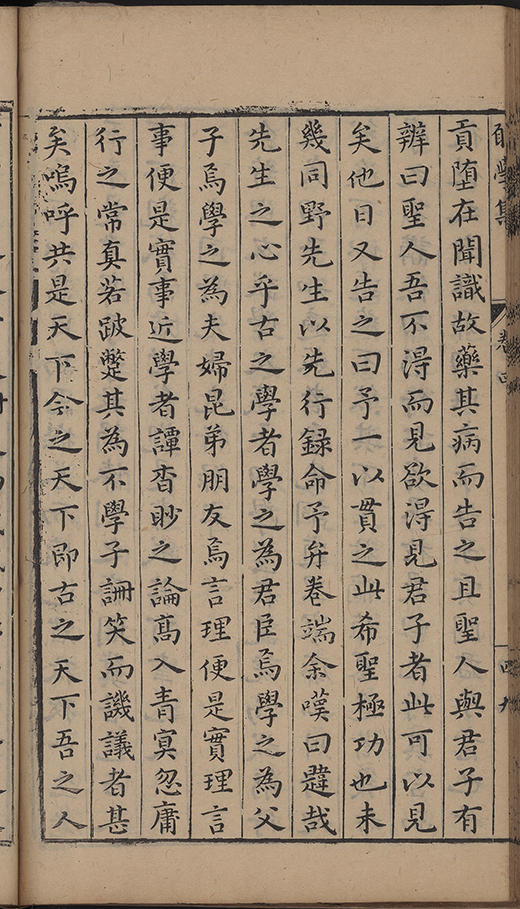 願學集
卷四
四九
貢墮在聞識故藥其病而告之且聖人與君子有
辨曰聖人吾不得而見欲得見君子者此可以見
矣他日又告之曰予一以貫之此希聖極功也未
幾同野先生以先行録命予弁卷端余嘆曰韙哉
先生之心乎古之學者學之為君臣焉學之為父
子焉學之為夫婦昆弟朋友焉言理便是實理言
事便是實事近學者譚杳眇之論髙入青冥忽庸
行之常真若跛躄其為不學子訕笑而譏議者甚
矣嗚呼共是天下今之天下即古之天下吾之人